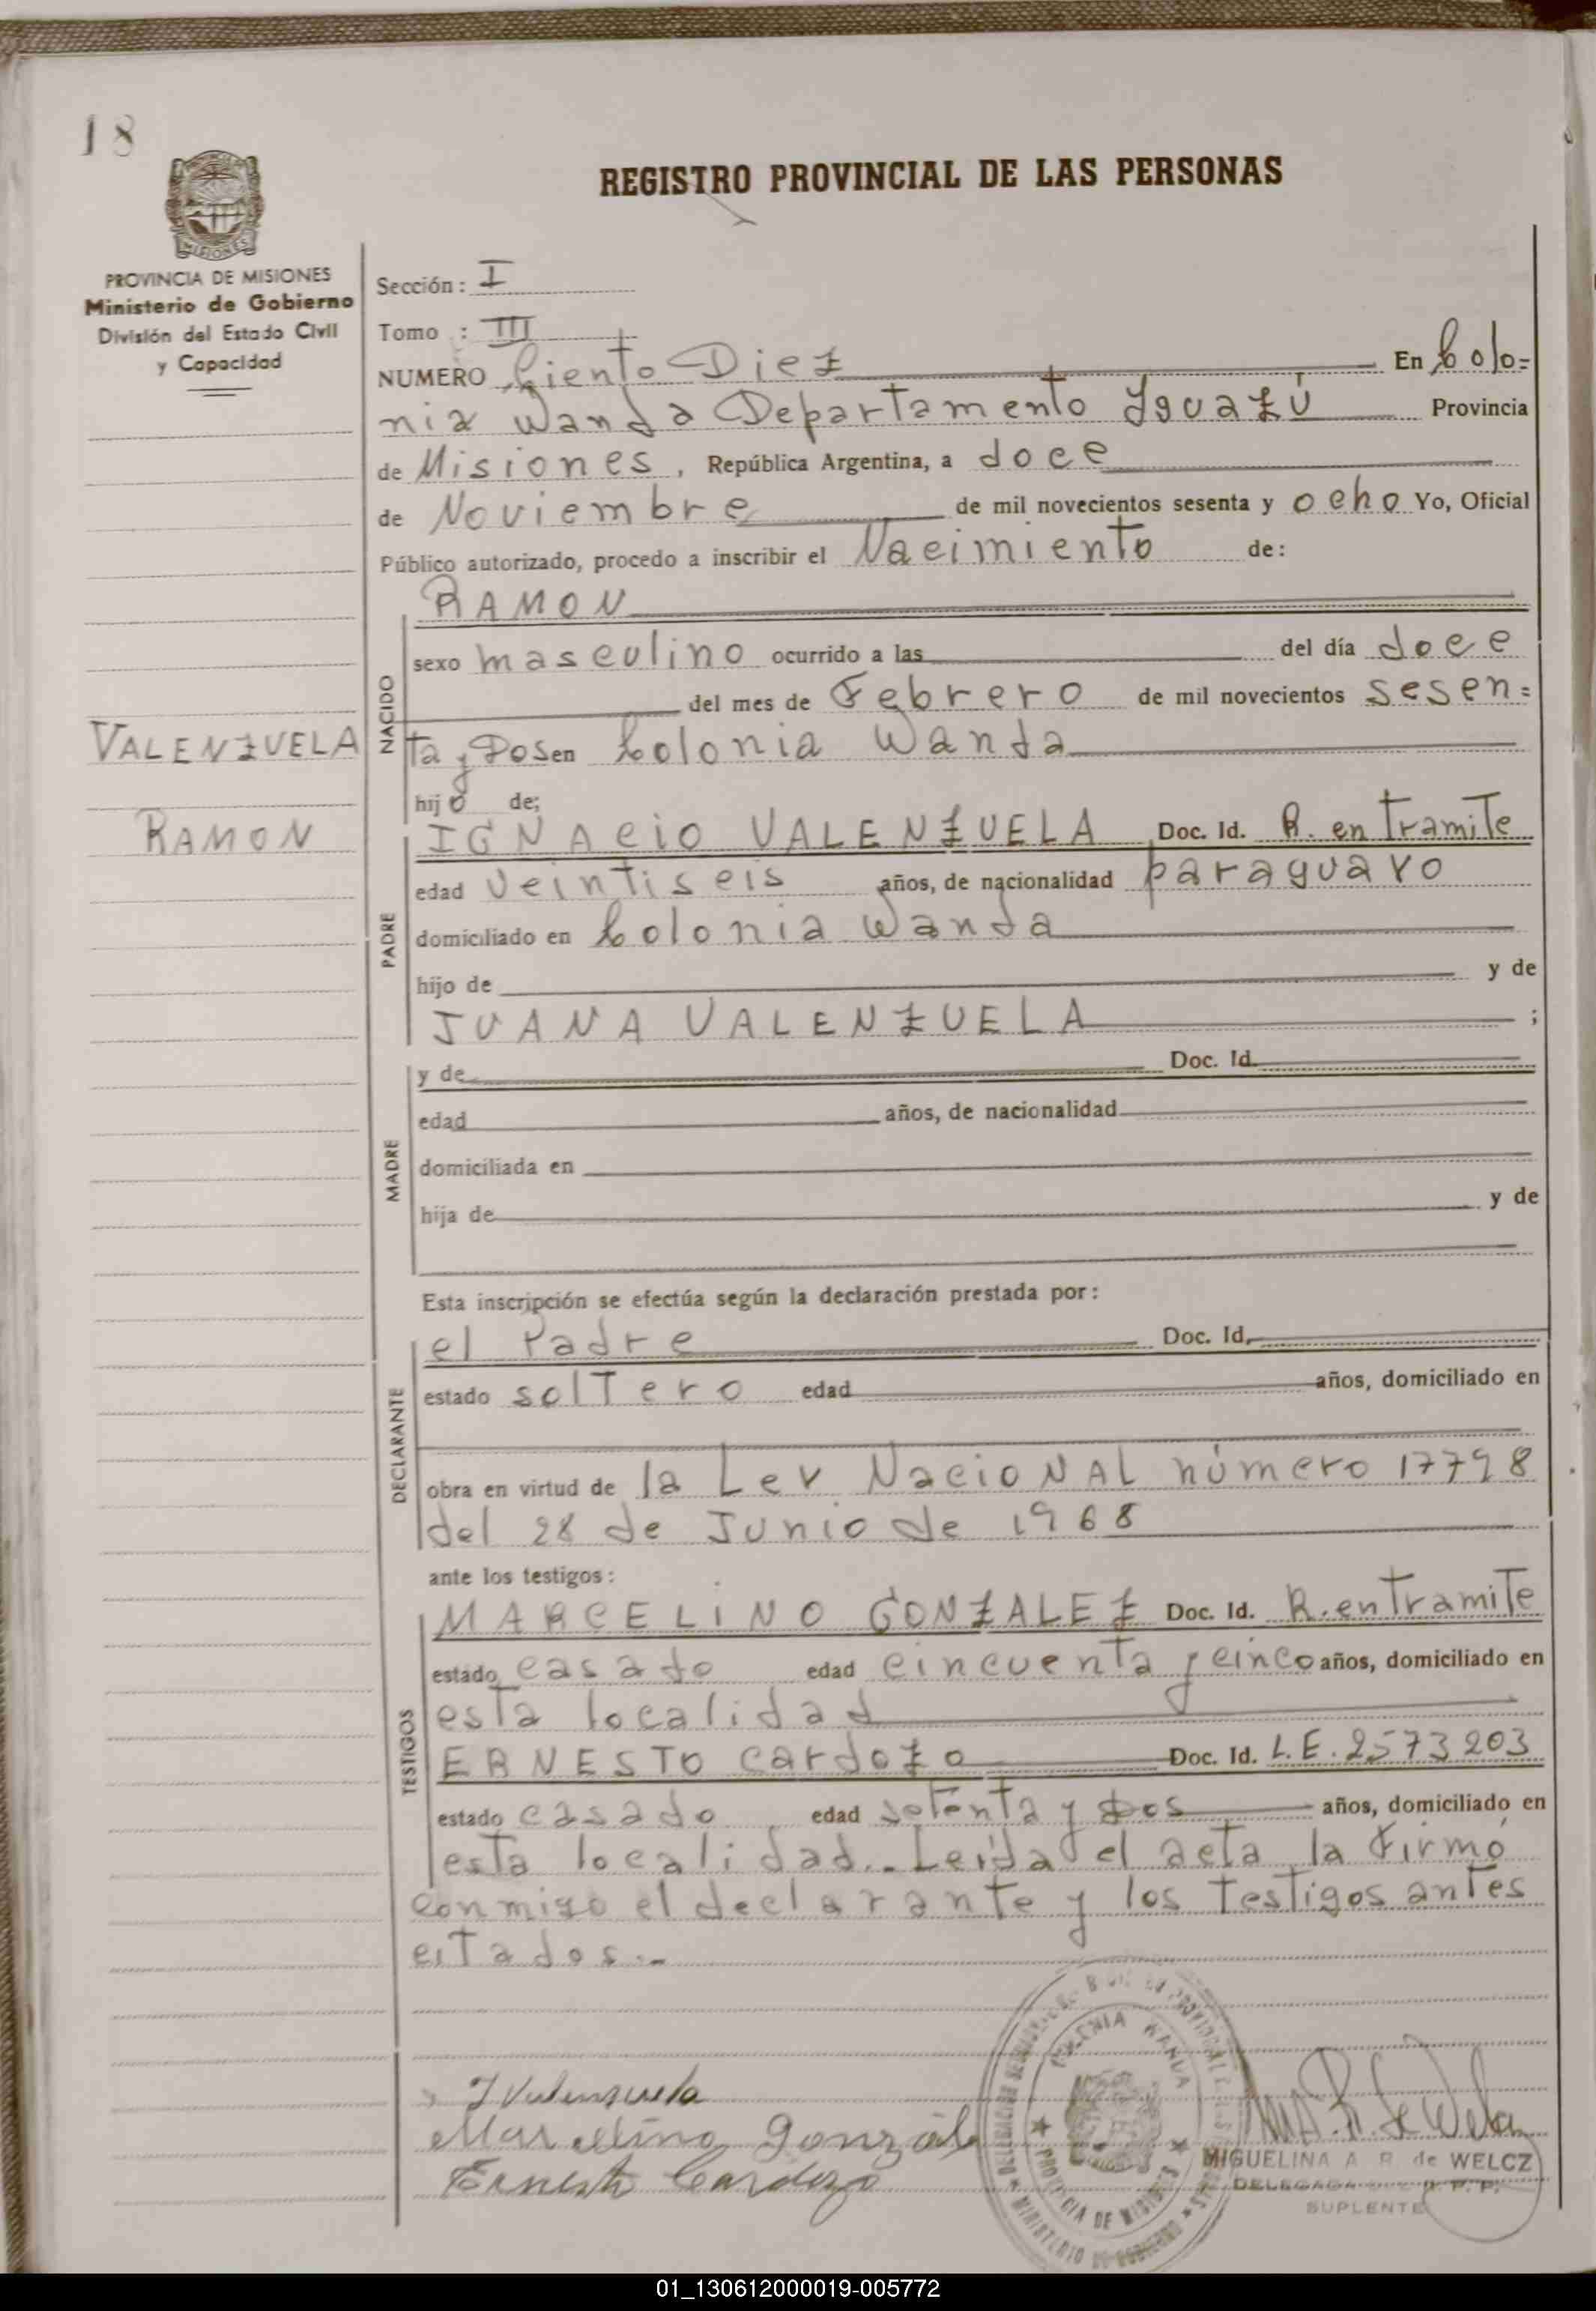 18
REGISTRO PROVINCIAL DE LAS PERSONAS
MISIONES
PROVINCIA DE MISIONES
Ministerio de Gobierno
División del Estado Civil
y Capacidad
Sección: I
Tomo : III
NUMERO Ciento Diez En Colo=
nia Wanda Departamento Iguazú Provincia
de Misiones, República Argentina, a doce
de Noviembre de mil novecientos sesenta y ocho Yo, Oficial
Público autorizado, procedo a inscribir el Nacimiento de:
NACIDO
RAMON
sexo masculino ocurrido a las del día doce
del mes de Febrero de mil novecientos sesen=
ta y Dos en Colonia Wanda
VALENZUELA
RAMON
hijo de;
PADRE
IGNACIO VALENZUELA Doc. Id. R. en Tramite
edad veintiseis años, de nacionalidad paraguayo
domiciliado en Colonia Wanda
hijo de y de
JUANA VALENZUELA ;
MADRE
y de Doc. Id.
edad años, de nacionalidad
domiciliada en
hija de y de
Esta inscripción se efectúa según la declaración prestada por:
DECLARANTE
el Padre Doc. Id.
estado solTero edad años, domiciliado en
obra en virtud de la Ley NacioNAL número 17798
del 28 de Junio de 1968
ante los testigos:
TESTIGOS
MARCELINO GONZALEZ Doc. Id. R. en Tramite
estado casado edad cincuenta y cinco años, domiciliado en
esta localidad
ERNESTO Cardozo Doc. Id. L.E. 2573203
estado casado edad setenta y Dos años, domiciliado en
esta localidad.-Leída el acta la firmó
conmigo el declarante y los Testigos antes
citados.-
I Valenzuela
Marcelino Gonzál
Ernesto Cardozo
COLONIA WANDA
PROVINCIA DE MISIONES
MINISTERIO DE GOBIERNO
MIGUELINA A. R. de WELCZ
DELEGADA R. P. P.
SUPLENTE
01_130612000019-005772